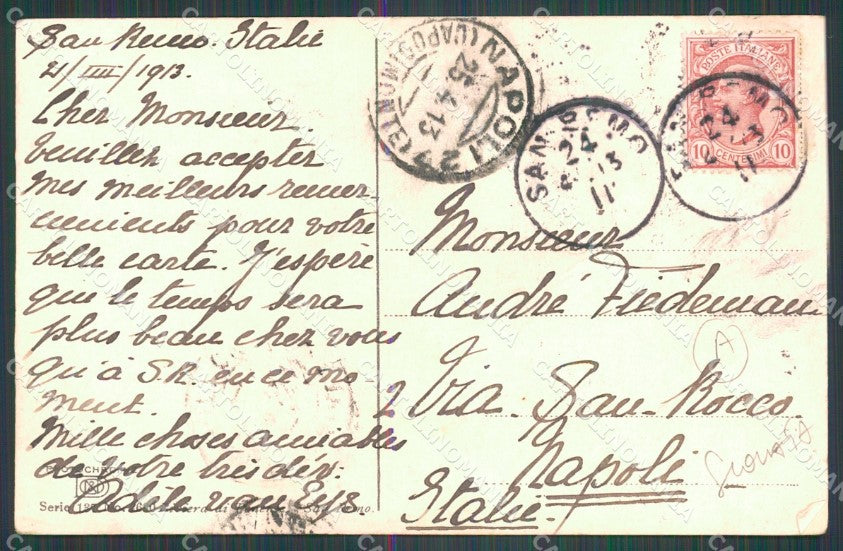 San Remo. Italie
21/IIII/1913.
Cher Monsieur.
Veuillez accepter
mes meilleurs remer-
ciments pour votre
belle carte. J'espère
que le temps sera
plus beau chez vous
qu'à S.R. en ce mo
ment.
Mille choses aimables
de votre très dév.
Adèle van Eys.
PHOTOCHROM
Serie
NAPOLI
25.4.13
SAN REMO
24
13
11
SAN REMO
24
13
11
POSTE ITALIANE
10 CENTESIMI 10
Monsieur
André Fiedeman
2 Via San-Rocco.
Napoli
Italie.
A
CARTOLINOMANIA